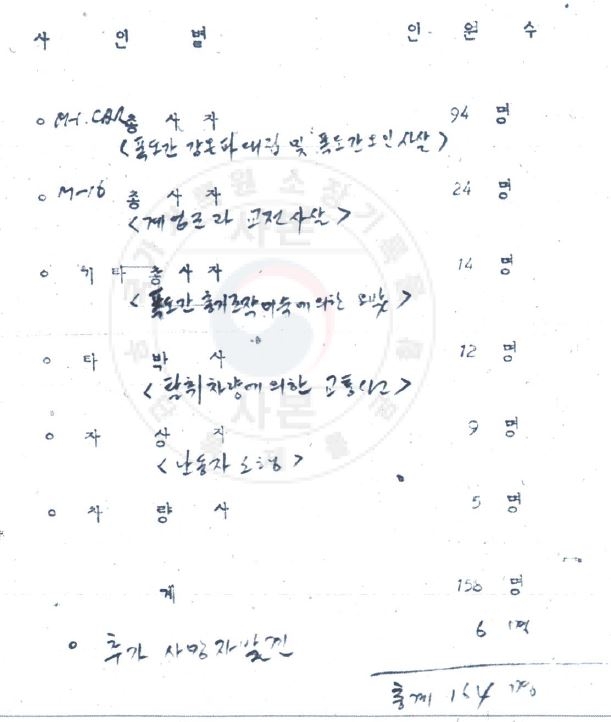 사 인 별 인 원 수
o M-1. CAR 총 사 자 94 명
<폭도간 강온파 대립 및 폭도간 오인사살>
o M-16 총 사 자 24 명
<계엄군과 교전사살>
o 기 타 총 사 자 14 명
<폭도간 총기조작 미숙에 의한 오발>
o 타 박 사 12 명
<탈취차량에 의한 교통사고>
o 자 상 자 9 명
<난동자 소행>
o 차 량 사 5 명
계 158 명
6 명
o 추가 사망자발견
총계 164 명
사본
사본